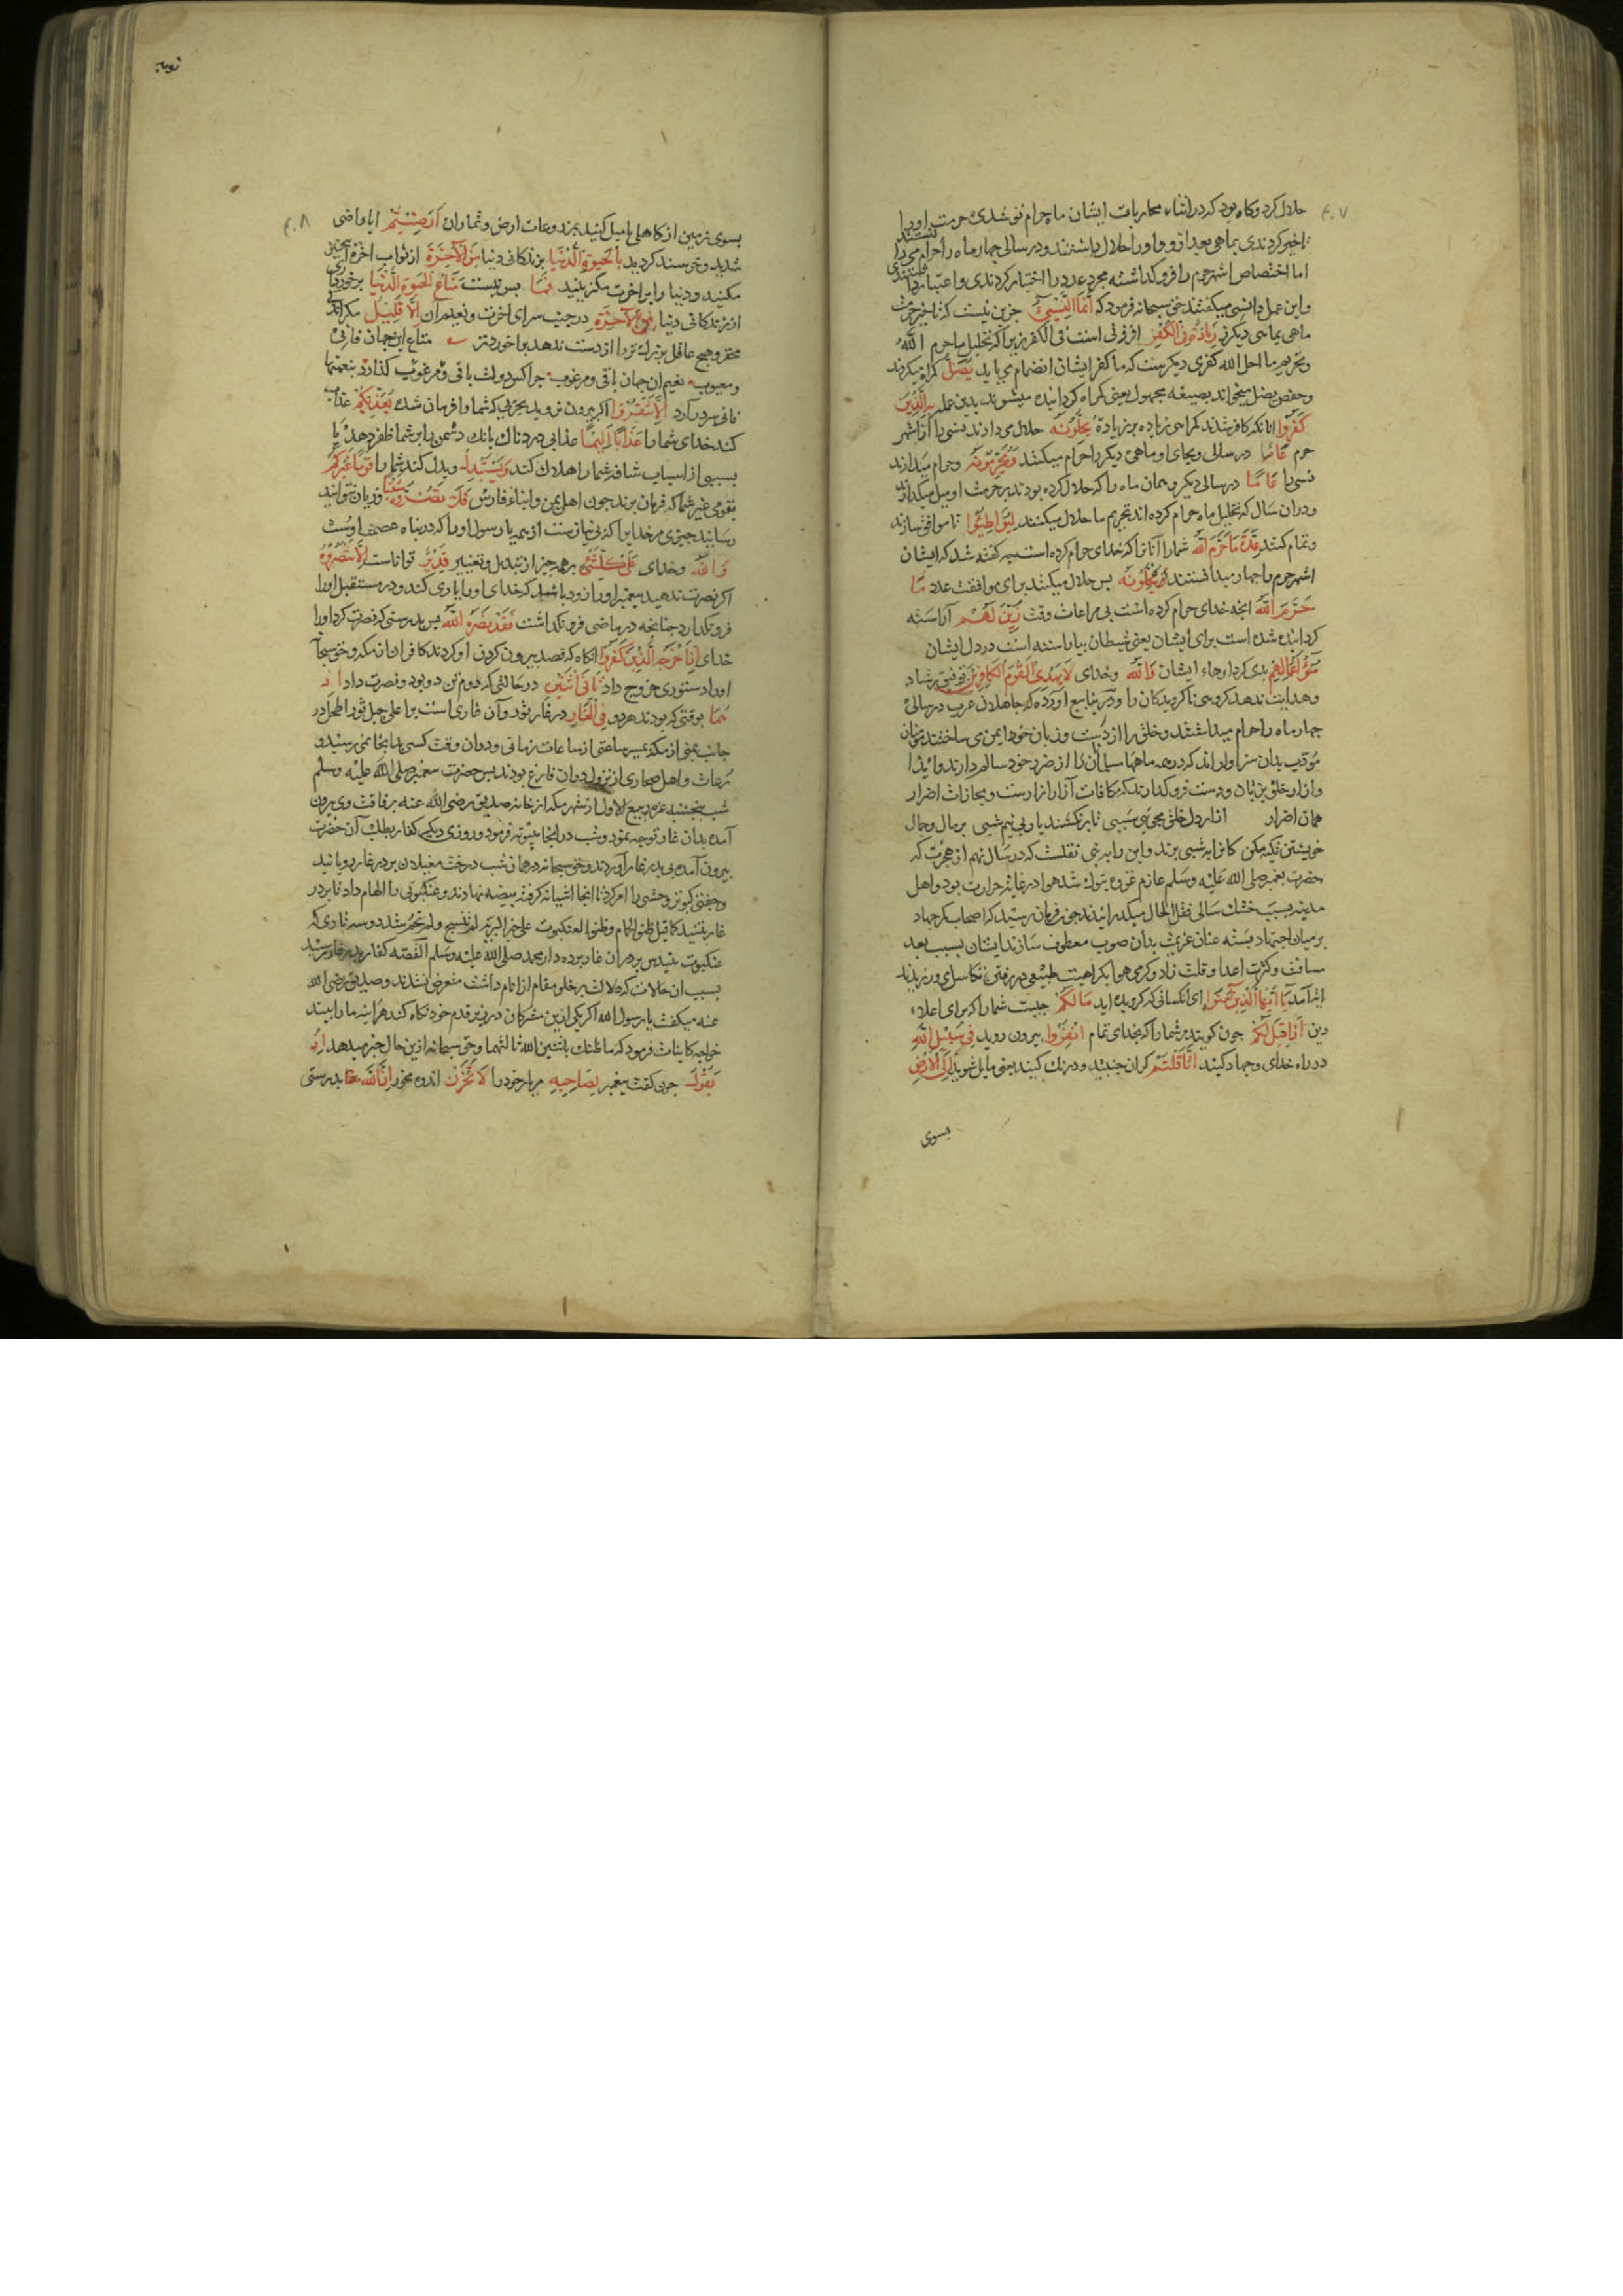 حلال کرد وکاه بود که در اثناء محاربات ایشان ماه حرام نو شدی حرمت اورا
تاخیر کردندی بماهی بعد ازو واورا حلال داشتند ودر سالی جهار ماه را حرام می داشتندی
اما اختصاص اشهر حرم را فرو کذاشته مجرد عدد را اختیار کردندی واعتبار
واین عمل را نسی میکفتند حق سبحانه فرمود که اِنَّمَا النَّسِیءُ جزین نیست که تاخیر حرمت
ماهی بماهی دیکر زِیَادَةٌ فِی الْکُفْرِ افزونی است فی الکفر زیرا که تحلیل ما حرم الله
وتحریم ما احل الله کفری دیکرست که با کفر ایشان انضمام می یابد یُضَلُّ کمراه میکردند
وحفص یضل میخواند بصیغه مجهول یعنی کمراه کردانیده میشوند بدین عمل بِهِ الَّذِینَ
کَفَرُوا انانکه کافر شدند کمراهی زیاده بر زیادة یُحِلُّونَهُ حلال می دارند نسی را از اشهر
حرم عَامًا در سالی وبجای او ماهی دیکر را حرام میکنند وَیُحَرِّمُونَهُ وحرام میدارند
نسی را عَامًا در سالی دیکر وهمان ماه را که حلال کرده بودند بر حرمت او میل میکذارند
ودران سال که تحلیل ماه حرام کرده اند تحریم ما حلال میکنند لِیُوَاطِئُوا تا موافق سازند
وتمام کنند عِدَّةَ مَا حَرَّمَ اللهُ شماره آنا نرا که خدای حرام کرده است یعنی کفته شد که ایشان
اشهر حرم را جهار میدانستند فَیُحِلُّونَهُ بس حلال میکنند برای موافقت عدد مَا
حَرَّمَ اللهُ انجه خدای حرام کرده است بی مراعات وقت زُیِّنَ لَهُمْ آراسته
کردانیده شده است برای ایشان یعنی شیطان بیاراسته است در دل ایشان
سُوءُ اَعْمَالِهِمْ بدی کردارهاء ایشان وَاللهُ وخدای لَا یَهْدِی الْقَوْمَ الْکَافِرِینَ توفیق رشاد
وهدایت ندهد کروهی ناکرویدکان را ودر ینابیع آورده که جاهلان عرب در سالی
جهار ماه را حرام میداشتند وخلق را از دست وزبان خود ایمن می ساختند مؤمنان
وازار خلق بر زبان ودست فرو کذارند که مکافات آزار ازارست ومجازات اضرار
همان اضرار
خویشتن تکیه مکن کانرا به شبی برند واین را به تبی نقلست که در سال نهم از هجرت که
حضرت بغمبر صلی الله علیه وسلم عازم غزوه تبوک شد هوا در غایة حرارت بود واهل
مدینه بسبب خشک سالی بثقل الحال میکذرانیدند جون فرمان رسید که اصحاب کمر جهاد
بر میان اجتهاد بسته عنان عزیمت بدان صوب معطوف سازند ایشان بسبب بعد
مسافت وکثرت اعدا وقلت زاد وکرمی هوا بکراهیت طبیعی در رفتن تکاسلی ورزیدند
ایة آمد یَا اَیُّهَا الَّذِینَ آمَنُوا ای انکسانی که کرویده اید مَا لَکُمْ جیست شمارا که برای اعلاء
دین اِذَا قِیلَ لَکُمْ جون کویند مر شمارا که بخدای تمام انْفِرُوا بیرون روید فِی سَبِیلِ اللهِ
در راه خدای وجهاد کنید اثَّاقَلْتُمْ کران جنبید ودرنک کنید یعنی مایل شوید اِلَی الْاَرْضِ
بسوی
توبه
۴۰۸
بسوی زمین از کاهلی یا میل کنید بمزروعات ارض وثماران اَرَضِیتُمْ ایا راضی
شدید وخرسند کردید بِالْحَیوةِ الدُّنْیَا بزندکانی دنیا مِنَ الْآخِرَةِ از ثواب اخرة
مکنید ودنیا را بر اخرت مکزینید فَمَا بس نیست مَتَاعُ الْحَیوةِ الدُّنْیَا برخورداری
از زندکانی دنیا فِی الْآخِرَةِ در جنب سرای اخرت ونعیم ان اِلَّا قَلِیلٌ مکر اندکی
محقر وهیج عاقل بزرک تر را از دست ندهد برا خوردتر متاع این جهان فانی
ومعیوب نعیم ان جهان باقی ومرغوب جرا کس دولت باقی ومرغوب کذارد بنعمتها
فانی سر درآرد اِلَّا تَنْفِرُوا اکر بیرون نروید بحربی که شمارا فرمان شده یُعَذِّبْکُمْ عذاب
کند خدای شمارا عَذَابًا اَلِیمًا عذابی دردناک یا نک دشمن را بر شما ظفر دهد یا
بسببی از اسباب شاقه شمارا هلاک کند وَیَسْتَبْدِلْ وبدل کند شمارا قَوْمًا غَیْرَکُمْ
بقومی غیر شما که فرمان برند جون اهل یمن وابناء فارس وَلَا تَضُرُّوهُ شَیْئًا وزیان نتوانید
رسانید جیزی مر خدایرا که بی نیازست از همه یا رسول اورا که در بناه عصمت اوست
وَاللهُ وخدای عَلَی کُلِّ شَیْءٍ بر همه جیز از تبدیل وتغییر قَدِیرٌ تواناست اِلَّا تَنْصُرُوهُ
اکر نصرت ندهید بیغمبر اورا زود باشد که خدای اورا یاری کند ودر مستقبل اورا
فرو نکذارد جنانجه در ماضی فرو نکذاشت فَقَدْ نَصَرَهُ اللهُ بس بدرستی که نصرت کرد اورا
خدای اِذْ اَخْرَجَهُ الَّذِینَ کَفَرُوا انکاه که قصد بیرون کردن او کردند کافران از مکه وحق سبحانه
اورا دستوری خروج داد ثَانِیَ اثْنَیْنِ در حالتی که دوم تن دو بود ونصرت داد اِذْ
هُمَا بوقتی که بودند هر دو فِی الْغَارِ در غار ثور وآن غاری است بر اعلی جبل ثور اطحل در
جانب یمنی از مکه بمسیر ساعتی از ساعات زمانی ودران وقت کسی بدانجا نمی رسید و
رعات واهل صحاری از نزول دران فارغ بودند بس حضرت بیغمبر صلی الله علیه وسلم
شب بنجشنبه غره ربیع الاول از شهر مکه از خانه صدیق رضی الله عنه برفاقت وی بیرون
آمده بدان غار توجه نمود وشب در انجا بیتوته فرمود وروزی دیکر کفار بطلب آن حضرت
بیرون آمده بی بدر غار آوردند وحق سبحانه در همان شب درخت مغیلان بر در غار رویانید
وجفتی کبوتر وحشی را امر کرد تا انجا اشیانه کرفته بیضه نهادند وعنکبوتی را الهام داد تا بر در
غار تنید کما قیل ظنوا الحمام وظنوا العنکبوت علی خیر البریة لم تنسج ولم تحم شد دو سه تاری که
عنکبوت تنید بس بر در ان غار برده دار محمد صلی الله علیه وسلم القصه کفار بدر غار رسید
بسبب ان حالات که دلالت بر خلو مقام از انام داشت متعرض نشدند وصدیق رضی الله
عنه میکفت یا رسول الله اکر یکی ازین مشرکان در زیر قدم خود نکاه کند هر اینه مارا ببیند
خواجه کاینات فرمود که ما ظنک باثنین الله ثالثهما وحق سبحانه ازین حال خبر میدهد اِذْ
یَقُولُ جون کفت بیغمبر لِصَاحِبِهِ مر یار خود را لَا تَحْزَنْ اندوه مخور اِنَّ اللهَ مَعَنَا بدرستی